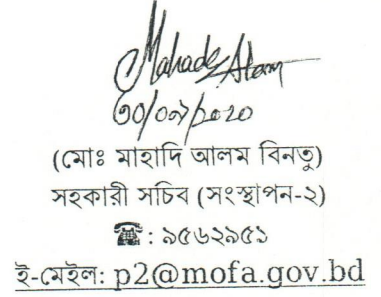 Mahade Alam
৩০/০৯/২০২০
(মোঃ মাহাদি আলম বিনতু)
সহকারী সচিব (সংস্থাপন-২)
☎: ৯৫৬২৯৫১
ই-মেইল: p2@mofa.gov.bd